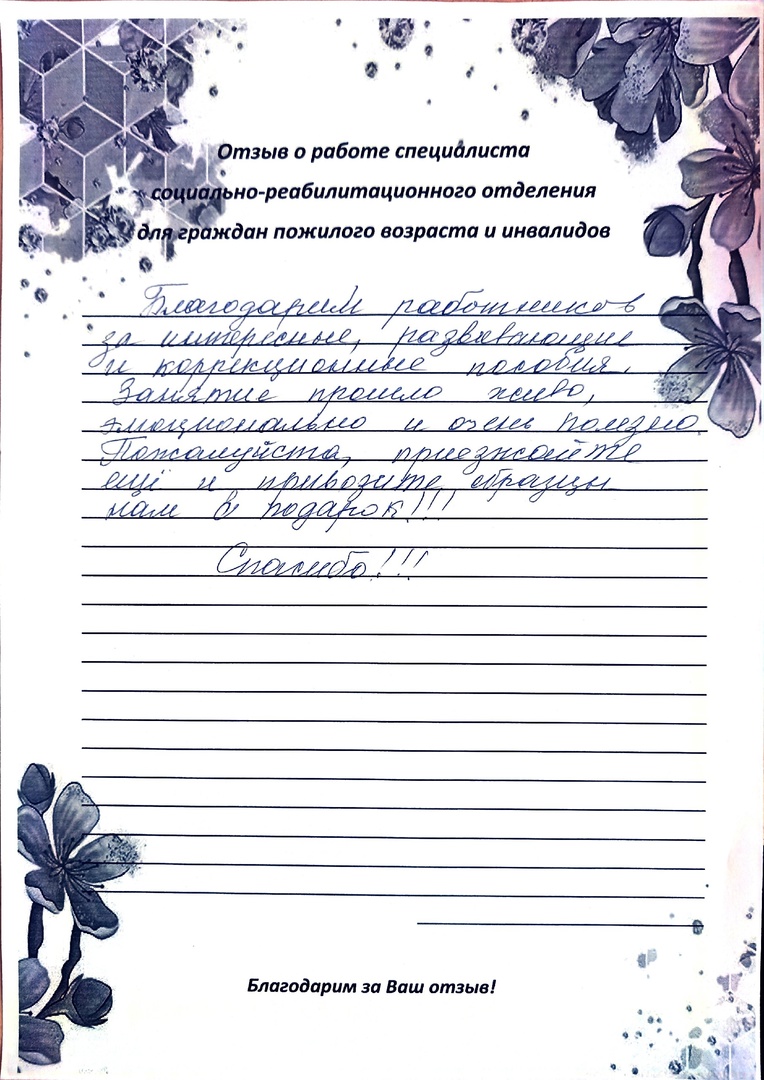 Отзыв о работе специалиста
социально-реабилитационного отделения
для граждан пожилого возраста и инвалидов
Благодарим работников
за интересные, развивающие
и коррекционные пособия.
Занятие прошло живо,
эмоционально и очень полезно.
Пожалуйста, приезжайте
ещё и привозите образцы
нам в подарок!!!
Спасибо!!!
Благодарим за Ваш отзыв!